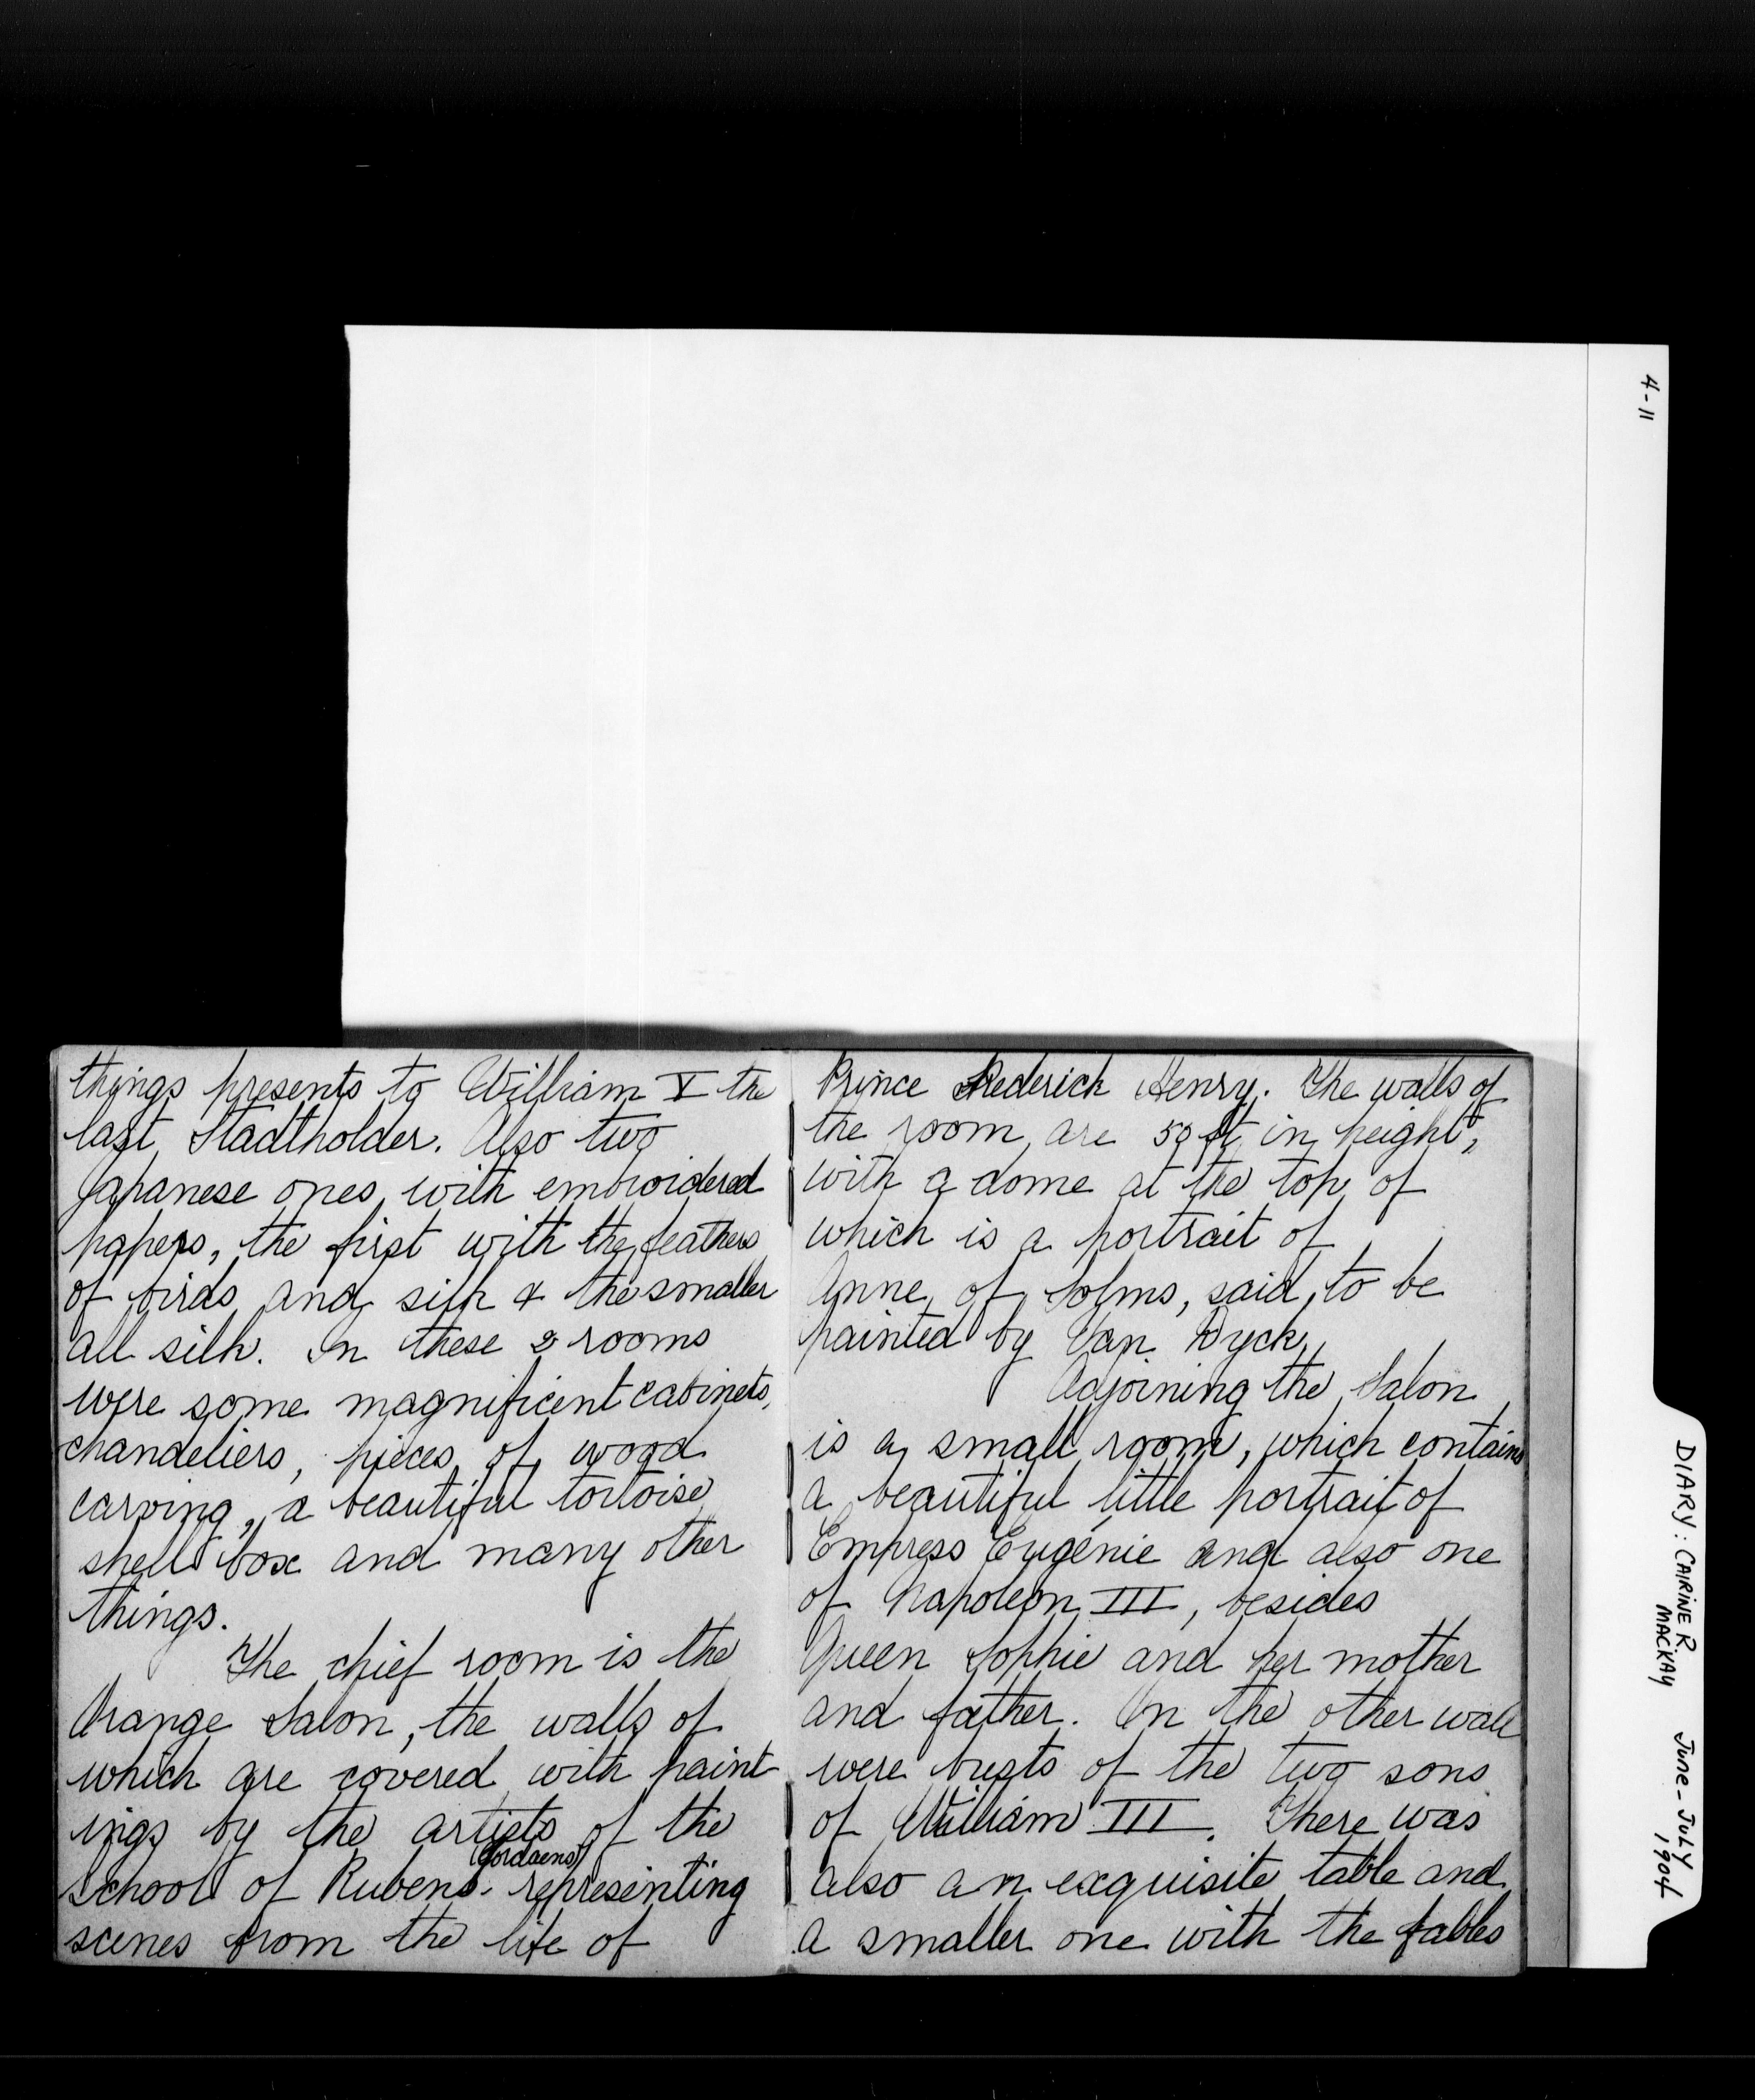 4-11
things presents to William V the
last Stadtholder. Also two
Japanese ones with embroidered
papers, the first with the feathers
of birds and silk & the smaller
all silk. In these 2 rooms
were some magnificent cabinets,
chandeliers, pieces of wood
carving, a beautiful tortoise
shell box and many other
things.
The chief room is the
Orange Salon, the walls of
which are covered with paint-
ings by the artists of the
(Jordaens)
School of Rubens representing
scenes from the life of
Prince Frederick Henry. The walls of
the room are 50 ft in height,
with a dome at the top of
which is a portrait of
Anne of Solms, said to be
painted by Van Dyck.
Adjoining the Salon
is a small room, which contains
a beautiful little portrait of
Empress Eugénie and also one
of Napoleon III, besides
Queen Sophie and her mother
and father. On the other wall
were busts of the two sons
of William III. There was
also an exquisite table and
a smaller one with the fables
DIARY: CAIRINE R. MACKAY
June - July 1904